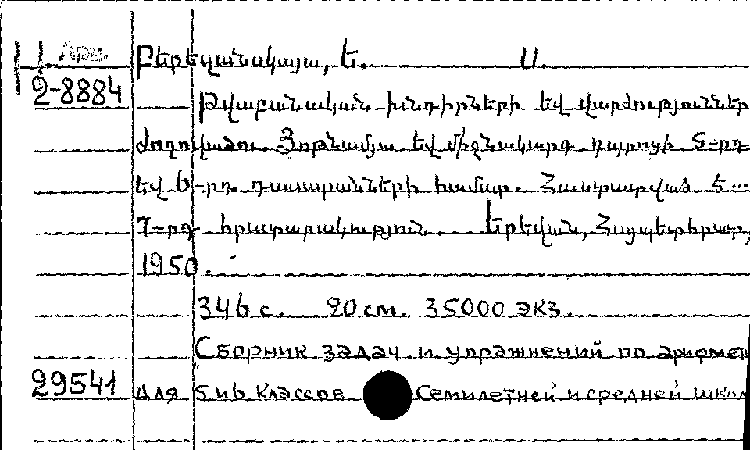 Арм.
2-8884
Բերեզանսկայա, Ե. Ս.
Թվաբանական խնդիրների եվ վարժություններ
ժողովածու Յոթնամյա եվ միջնակարգ դպրոցի 5-րդ
եվ 6-րդ դասարանների համար. Հաստատված է
7-րդ հրատարակություն. Երեվան, Հայպետհրատ,
1950.
346 с. 20 см. 35000 экз.
Сборник задач и упражнений по арифмет
29541 для 5 и 6 классов Семилетней и средней школ